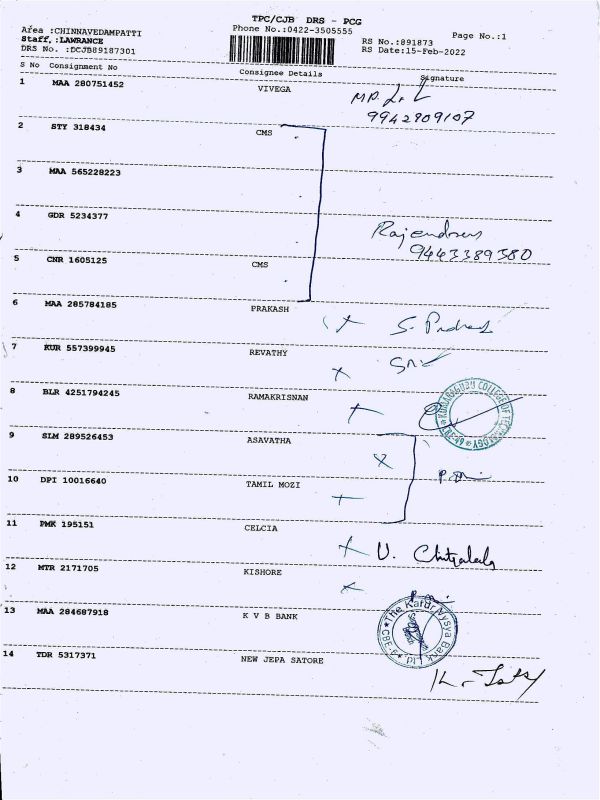 TPC/CJB DRS - PCG
Area :CHINNAVEDAMPATTI
Phone No.:0422-3505555
Page No.:1
Staff.:LAWRANCE
RS No.:891873
DRS No. :DCJB89187301
RS Date:15-Feb-2022
S No Consignment No Consignee Details Signature
1 MAA 280751452 VIVEGA
9942909107
2 STY 318434 CMS
3 MAA 565228223
4 GDR 5234377
Rajendran
9443389380
5 CNR 1605125 CMS
6 MAA 285784185 PRAKASH
7 KUR 557399945 REVATHY
8 BLR 4251794245 RAMAKRISNAN
KUMARAGURU COLLEGE OF TECHNOLOGY
9 SLM 289526453 ASAVATHA
10 DPI 10016640 TAMIL MOZI
11 PMK 195151 CELCIA
12 MTR 2171705 KISHORE
13 MAA 284687918 K V B BANK
The Karur Vysya Bank Ltd
14 TDR 5317371 NEW JEPA SATORE